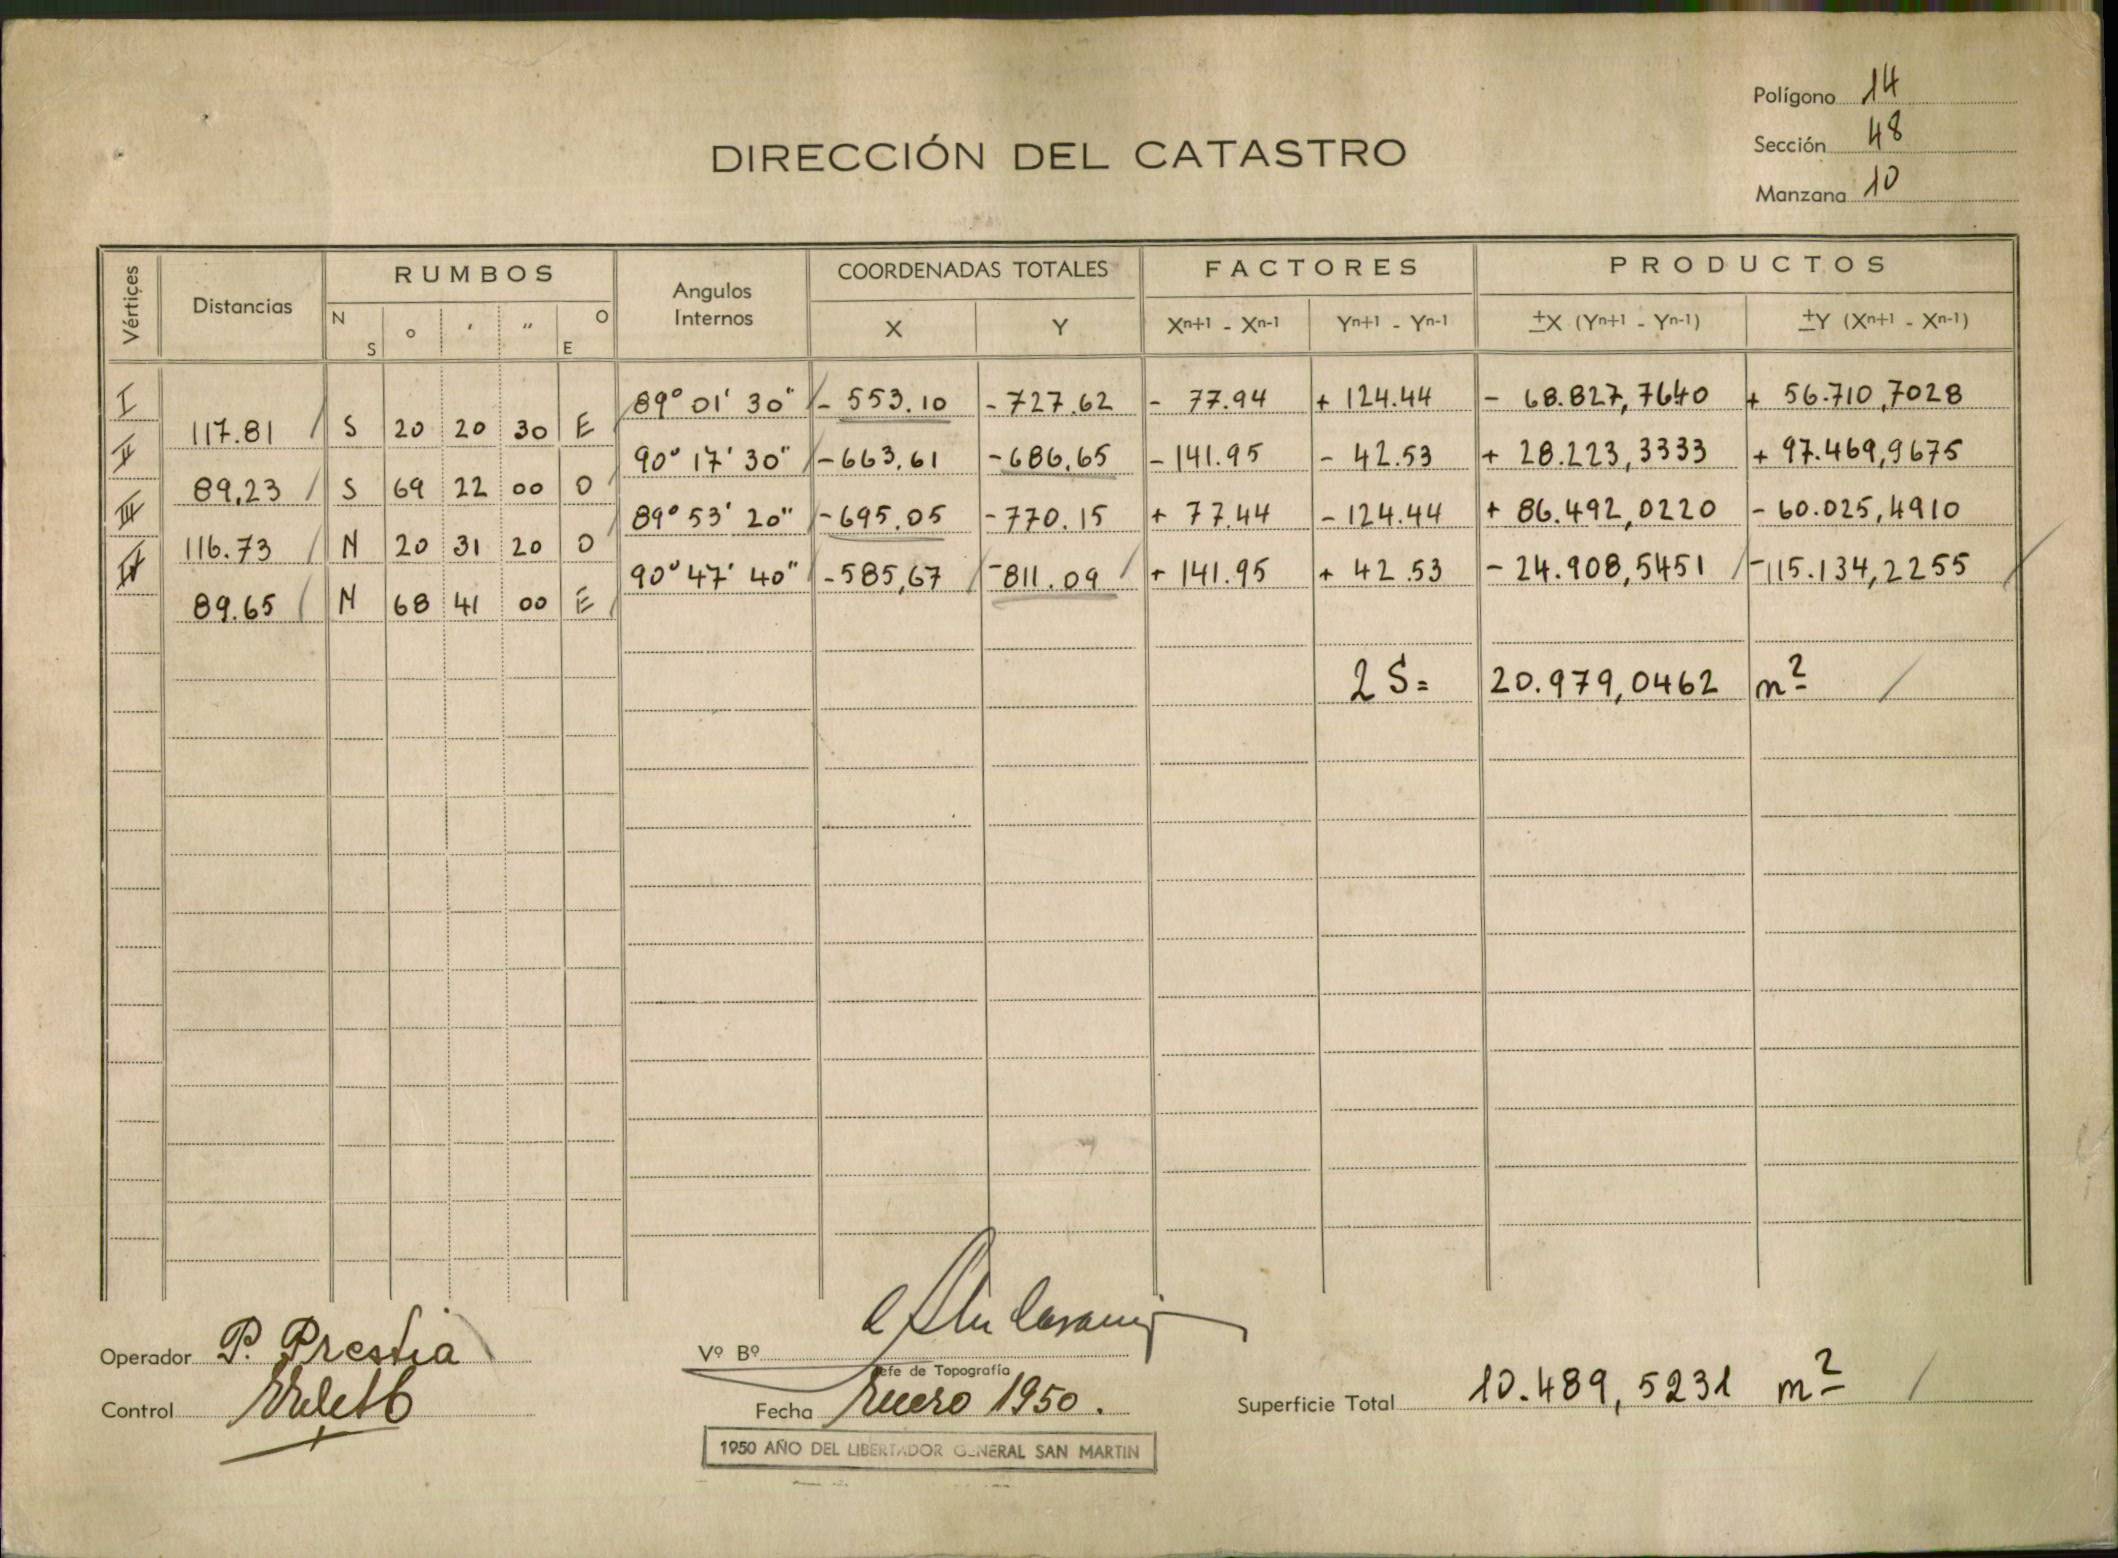 Polígono 14
Sección 48
Manzana 10
DIRECCIÓN DEL CATASTRO
Vértices Distancias RUMBOS Angulos Internos COORDENADAS TOTALES FACTORES PRODUCTOS
N S ° ′ ″ O E X Y Xn+1 - Xn-1 Yn+1 - Yn-1 ±X (Yn+1 - Yn-1) ±Y (Xn+1 - Xn-1)
I 89° 01' 30" - 553.10 - 727.62 - 77.94 + 124.44 - 68.827,7640 + 56.710,7028
117.81 S 20 20 30 E
II 90° 17' 30" - 663,61 - 686,65 - 141.95 - 42.53 + 28.223,3333 + 97.469,9675
89,23 S 69 22 00 O
III 89° 53' 20" - 695.05 - 770.15 + 77.44 - 124.44 + 86.492,0220 - 60.025,4910
116.73 N 20 31 20 O
IV 90° 47' 40" - 585,67 - 811.09 + 141.95 + 42.53 - 24.908,5451 - 115.134,2255
89.65 N 68 41 00 E
2 S = 20.979,0462 m²
Operador P. Prestia
Vº Bº
Jefe de Topografía
Control
Fecha Enero 1950.
Superficie Total 10.489,5231 m²
1950 AÑO DEL LIBERTADOR GENERAL SAN MARTIN